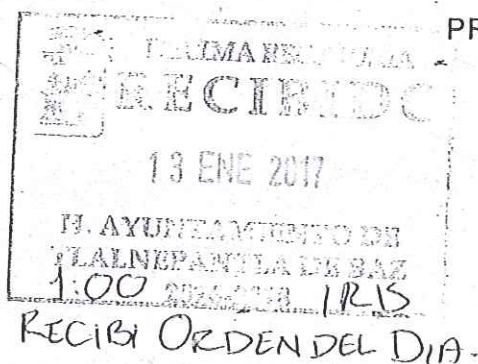 PR
DECIMA REGIDURIA
RECIBIDO
13 ENE 2017
H. AYUNTAMIENTO DE
TLALNEPANTLA DE BAZ
1:00 IRIS
RECIBI ORDEN DEL DIA.